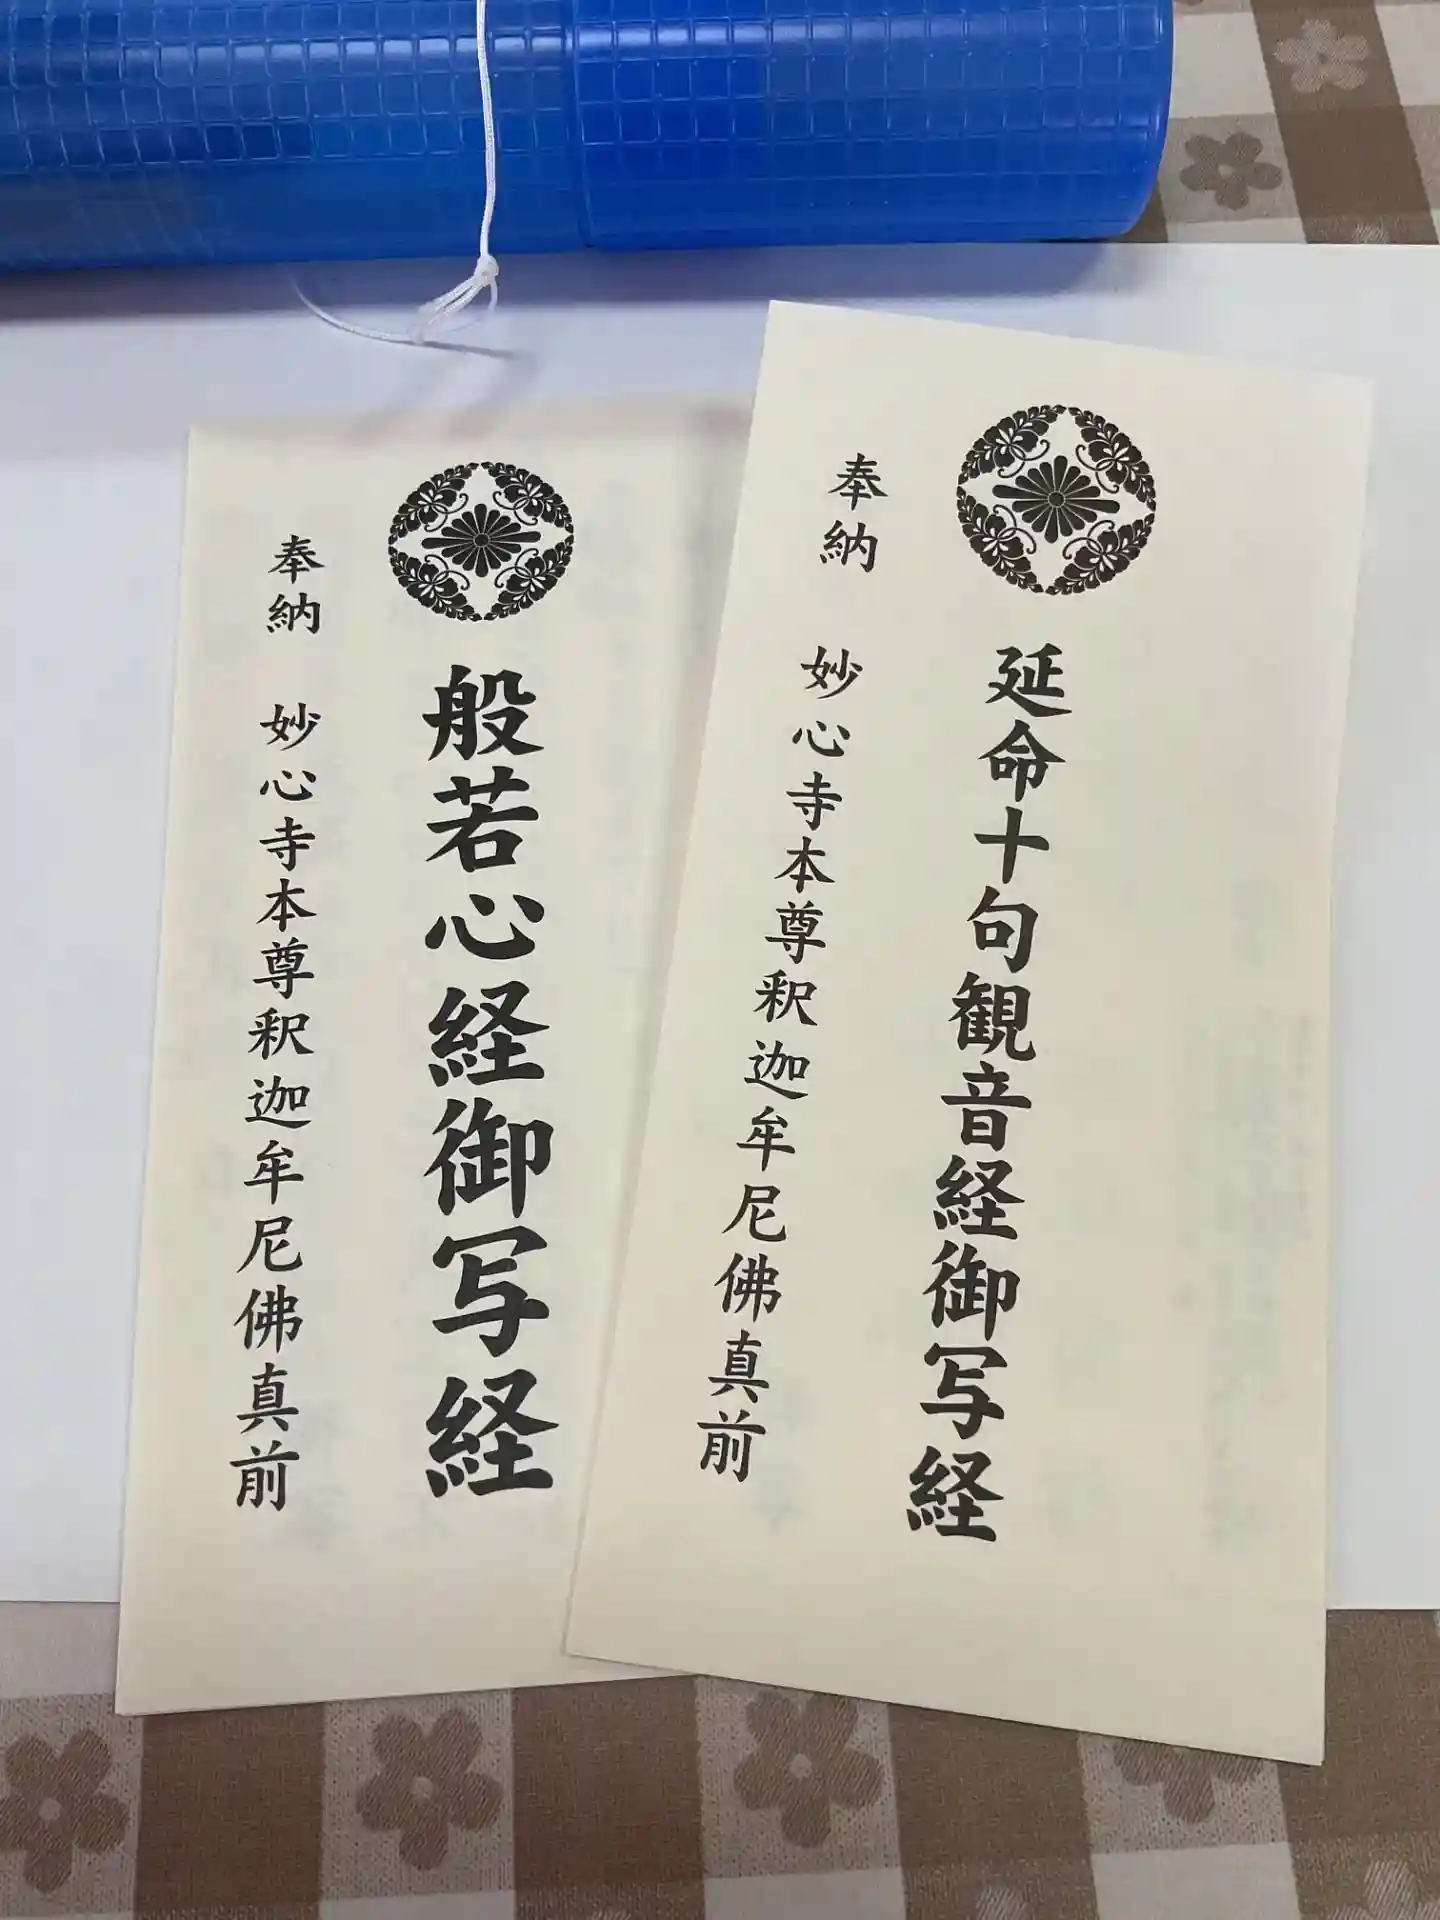 延命十句観音経御写経
奉納 妙心寺本尊釈迦牟尼佛真前
般若心経御写経
奉納 妙心寺本尊釈迦牟尼佛真前